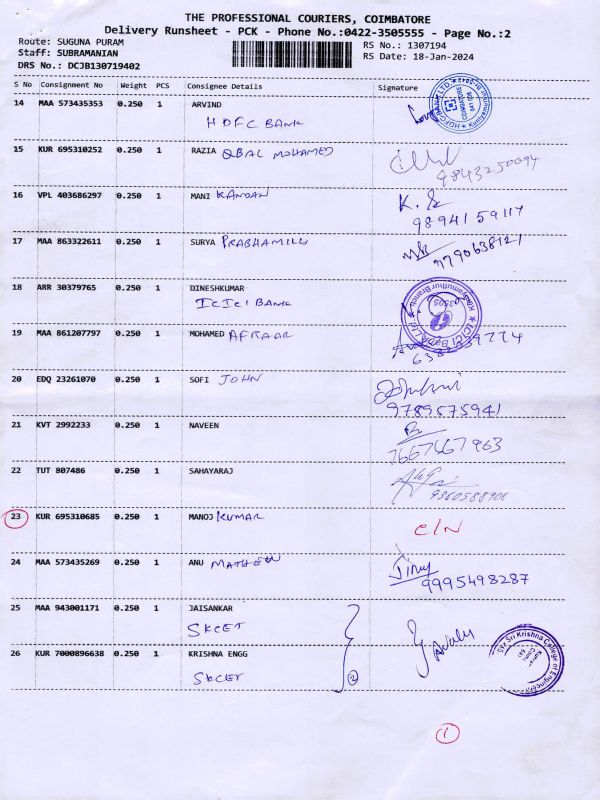 THE PROFESSIONAL COURIERS, COIMBATORE
Delivery Runsheet - PCK - Phone No.:0422-3505555 - Page No.:2
Route: SUGUNA PURAM RS No.: 1307194
Staff: SUBRAMANIAN RS Date: 18-Jan-2024
DRS No.: DCJB130719402
S No Consignment No Weight PCS Consignee Details Signature
14 MAA 573435353 0.250 1 ARVIND
HDFC BANK
15 KUR 695310252 0.250 1 RAZIA QBAL MOHAMED
9843250094
16 VPL 403686297 0.250 1 MANI KANDAN K.
9894159117
17 MAA 863322611 0.250 1 SURYA PRABHAMILL
9790638121
18 ARR 30379765 0.250 1 DINESHKUMAR
ICICI BANK
19 MAA 861207797 0.250 1 MOHAMED AFRAAR
20 EDQ 23261070 0.250 1 SOFI JOHN
9789575941
21 KVT 2992233 0.250 1 NAVEEN
7667467963
22 TUT 807486 0.250 1 SAHAYARAJ
9360588908
23 KUR 695310685 0.250 1 MANOJ KUMAR C/N
24 MAA 573435269 0.250 1 ANU MATHEW
9995498287
25 MAA 943001171 0.250 1 JAISANKAR
SKCET
26 KUR 7000896638 0.250 1 KRISHNA ENGG
SKCET
2
Sri Krishna College of Engineering
1